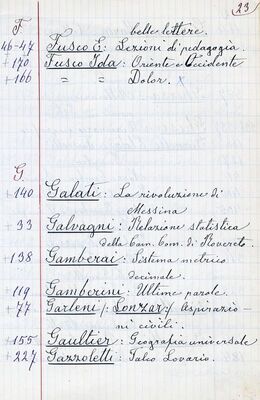 23
F belle lettere.
46-47 Fusco E: Lezioni di pedagogia.
+170 Fusco Ida: Oriente e Occidente
+166 " " Dolor. x
G
+140 Galati: La rivoluzione di
Messina
+33 Galvagni: Relazione statistica
della Cam. Com. di Rovereto.
+138 Gamberai: Sistema metrico
decimale.
119 Gamberini: Ultime parole.
+77 Garleni / Lonzar / Aspirazio-
ni civili.
+155 Gaultier: Geografia universale
+227 Gazzoletti: Falco Lovario.